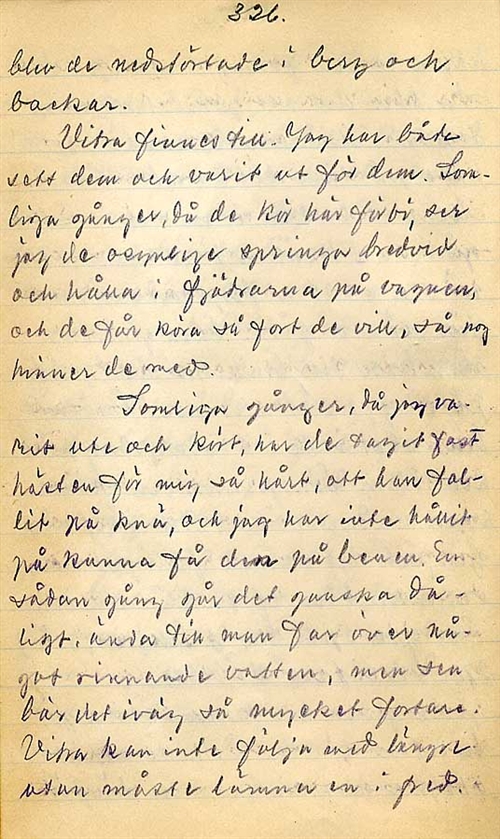 326.
blev de nedstörtade i berg och
backar.
Vitra finnes till. Jag har både
sett dem och varit ut för dem. Som-
liga gånger, då de kör här förbi, ser
jag de osynlige springa bredvid
och hålla i fjädrarna på vagnen,
och de får köra så fort de vill, så nog
hinner de med.
Somliga gånger, då jag va-
rit ute och kört, har de tagit fast
hästen för mig så hårt, att han fal-
lit på knä, och jag har inte hållit
på kunna få den på benen. En
sådan gång går det ganska då-
ligt, ända till man far över nå-
got rinnande vatten, men sen
bär det iväg så mycket fortare.
Vitra kan inte följa med längre
utan måste lämna en i fred.